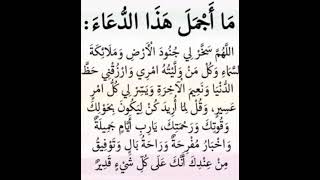 مَا أَجْمَلَ هَذَا الدُّعَاءَ:
اللَّهُمَّ سَخِّرْ لِي جُنُودَ الْأَرْضِ وَمَلَائِكَةَ
السَّمَاءِ وَكُلَّ مَنْ وَلَّيْتَهُ امْرِي وَارْزُقْنِي حَظَّ
الدُّنْيَا وَنَعِيمَ الْآخِرَةِ وَيَسِّرْ لِي كُلَّ امْرٍ
عَسِيرٍ، وَقُلْ لِمَا أُرِيدُ كُنْ لِيَكُونَ بِحَوْلِكَ
وَقُوَّتِكَ وَرَحْمَتِكَ، يَارِب أَيَّامٍ جَمِيلَةً
وَاخْبَارٍ مُفْرِحَةً وَرَاحَةً بَالٍ وَتَوْفِيقٍ
مِنْ عِنْدِكَ أَنَّكَ عَلَى كُلِّ شَيْءٍ قَدِيرٌ